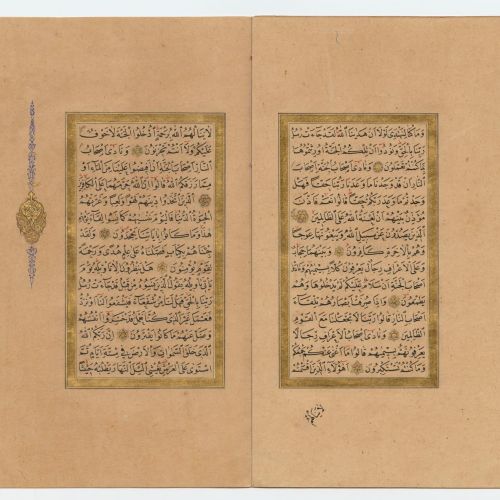 وَمَا كُنَّا لِنَهْتَدِيَ لَوْلَا أَنْ هَدٰينَا اللَّهُ لَقَدْ جَاءَتْ رُسُلُ
رَبِّنَا بِالْحَقِّ وَنُودُوا أَنْ تِلْكُمُ الْجَنَّةُ أُورِثْتُمُوهَا
بِمَا كُنْتُمْ تَعْمَلُونَ وَنَادَى أَصْحَابُ الْجَنَّةِ أَصْحَابَ
النَّارِ أَنْ قَدْ وَجَدْنَا مَا وَعَدَنَا رَبُّنَا حَقًّا فَهَلْ
وَجَدْتُمْ مَا وَعَدَ رَبُّكُمْ حَقًّا قَالُوا نَعَمْ فَأَذَّنَ
مُؤَذِّنٌ بَيْنَهُمْ أَنْ لَعْنَةُ اللَّهِ عَلَى الظَّالِمِينَ
الَّذِينَ يَصُدُّونَ عَنْ سَبِيلِ اللَّهِ وَيَبْغُونَهَا عِوَجًا
وَهُمْ بِالْآخِرَةِ كَافِرُونَ وَبَيْنَهُمَا حِجَابٌ
وَعَلَى الْأَعْرَافِ رِجَالٌ يَعْرِفُونَ كُلًّا بِسِيمٰيهُمْ وَنَادَوْا
أَصْحَابَ الْجَنَّةِ أَنْ سَلَامٌ عَلَيْكُمْ لَمْ يَدْخُلُوهَا وَهُمْ
يَطْمَعُونَ وَإِذَا صُرِفَتْ أَبْصَارُهُمْ تِلْقَاءَ
أَصْحَابِ النَّارِ قَالُوا رَبَّنَا لَا تَجْعَلْنَا مَعَ الْقَوْمِ
الظَّالِمِينَ وَنَادَى أَصْحَابُ الْأَعْرَافِ رِجَالًا
يَعْرِفُونَهُمْ بِسِيمٰيهُمْ قَالُوا مَا أَغْنَى عَنْكُمْ جَمْعُكُمْ
وَمَا كُنْتُمْ تَسْتَكْبِرُونَ أَهَؤُلَاءِ الَّذِينَ أَقْسَمْتُمْ
لَا يَنَالُهُمُ اللَّهُ بِرَحْمَةٍ ادْخُلُوا الْجَنَّةَ لَا خَوْفٌ
عَلَيْكُمْ وَلَا أَنْتُمْ تَحْزَنُونَ وَنَادَى أَصْحَابُ
النَّارِ أَصْحَابَ الْجَنَّةِ أَنْ أَفِيضُوا عَلَيْنَا مِنَ الْمَاءِ أَوْ
مِمَّا رَزَقَكُمُ اللَّهُ قَالُوا إِنَّ اللَّهَ حَرَّمَهُمَا عَلَى الْكَافِرِينَ
الَّذِينَ اتَّخَذُوا دِينَهُمْ لَهْوًا وَلَعِبًا وَغَرَّتْهُمُ
الْحَيٰوةُ الدُّنْيَا فَالْيَوْمَ نَنْسٰيهُمْ كَمَا نَسُوا لِقَاءَ يَوْمِهِمْ
هَذَا وَمَا كَانُوا بِآيَاتِنَا يَجْحَدُونَ وَلَقَدْ
جِئْنَاهُمْ بِكِتَابٍ فَصَّلْنَاهُ عَلَى عِلْمٍ هُدًى وَرَحْمَةً
لِقَوْمٍ يُؤْمِنُونَ هَلْ يَنْظُرُونَ إِلَّا تَأْوِيلَهُ يَوْمَ
يَأْتِي تَأْوِيلُهُ يَقُولُ الَّذِينَ نَسُوهُ مِنْ قَبْلُ قَدْ جَاءَتْ رُسُلُ
رَبِّنَا بِالْحَقِّ فَهَلْ لَنَا مِنْ شُفَعَاءَ فَيَشْفَعُوا لَنَا أَوْ نُرَدُّ
فَنَعْمَلَ غَيْرَ الَّذِي كُنَّا نَعْمَلُ قَدْ خَسِرُوا أَنْفُسَهُمْ
وَضَلَّ عَنْهُمْ مَا كَانُوا يَفْتَرُونَ إِنَّ رَبَّكُمُ اللَّهُ
الَّذِي خَلَقَ السَّمٰوَاتِ وَالْأَرْضَ فِي سِتَّةِ أَيَّامٍ ثُمَّ
اسْتَوَى عَلَى الْعَرْشِ يُغْشِي اللَّيْلَ النَّهَارَ يَطْلُبُهُ حَثِيثًا